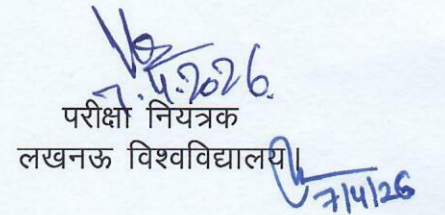 7.4.2026
परीक्षा नियंत्रक
लखनऊ विश्वविद्यालय।
7/4/26